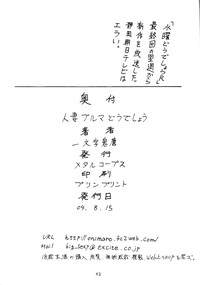 「水曜どうでしょう」
最終回の翌週から
新作を放送した
静岡朝日テレビは
エラい。
奥付
人妻ブルマどうでしょう
著者
一文字鬼麿
発行
メタルコープス
印刷
プリンプリント
発行日
09.8.15
URL http://onimaro.fc2web.com/
Mail big_sexy@excite.co.jp